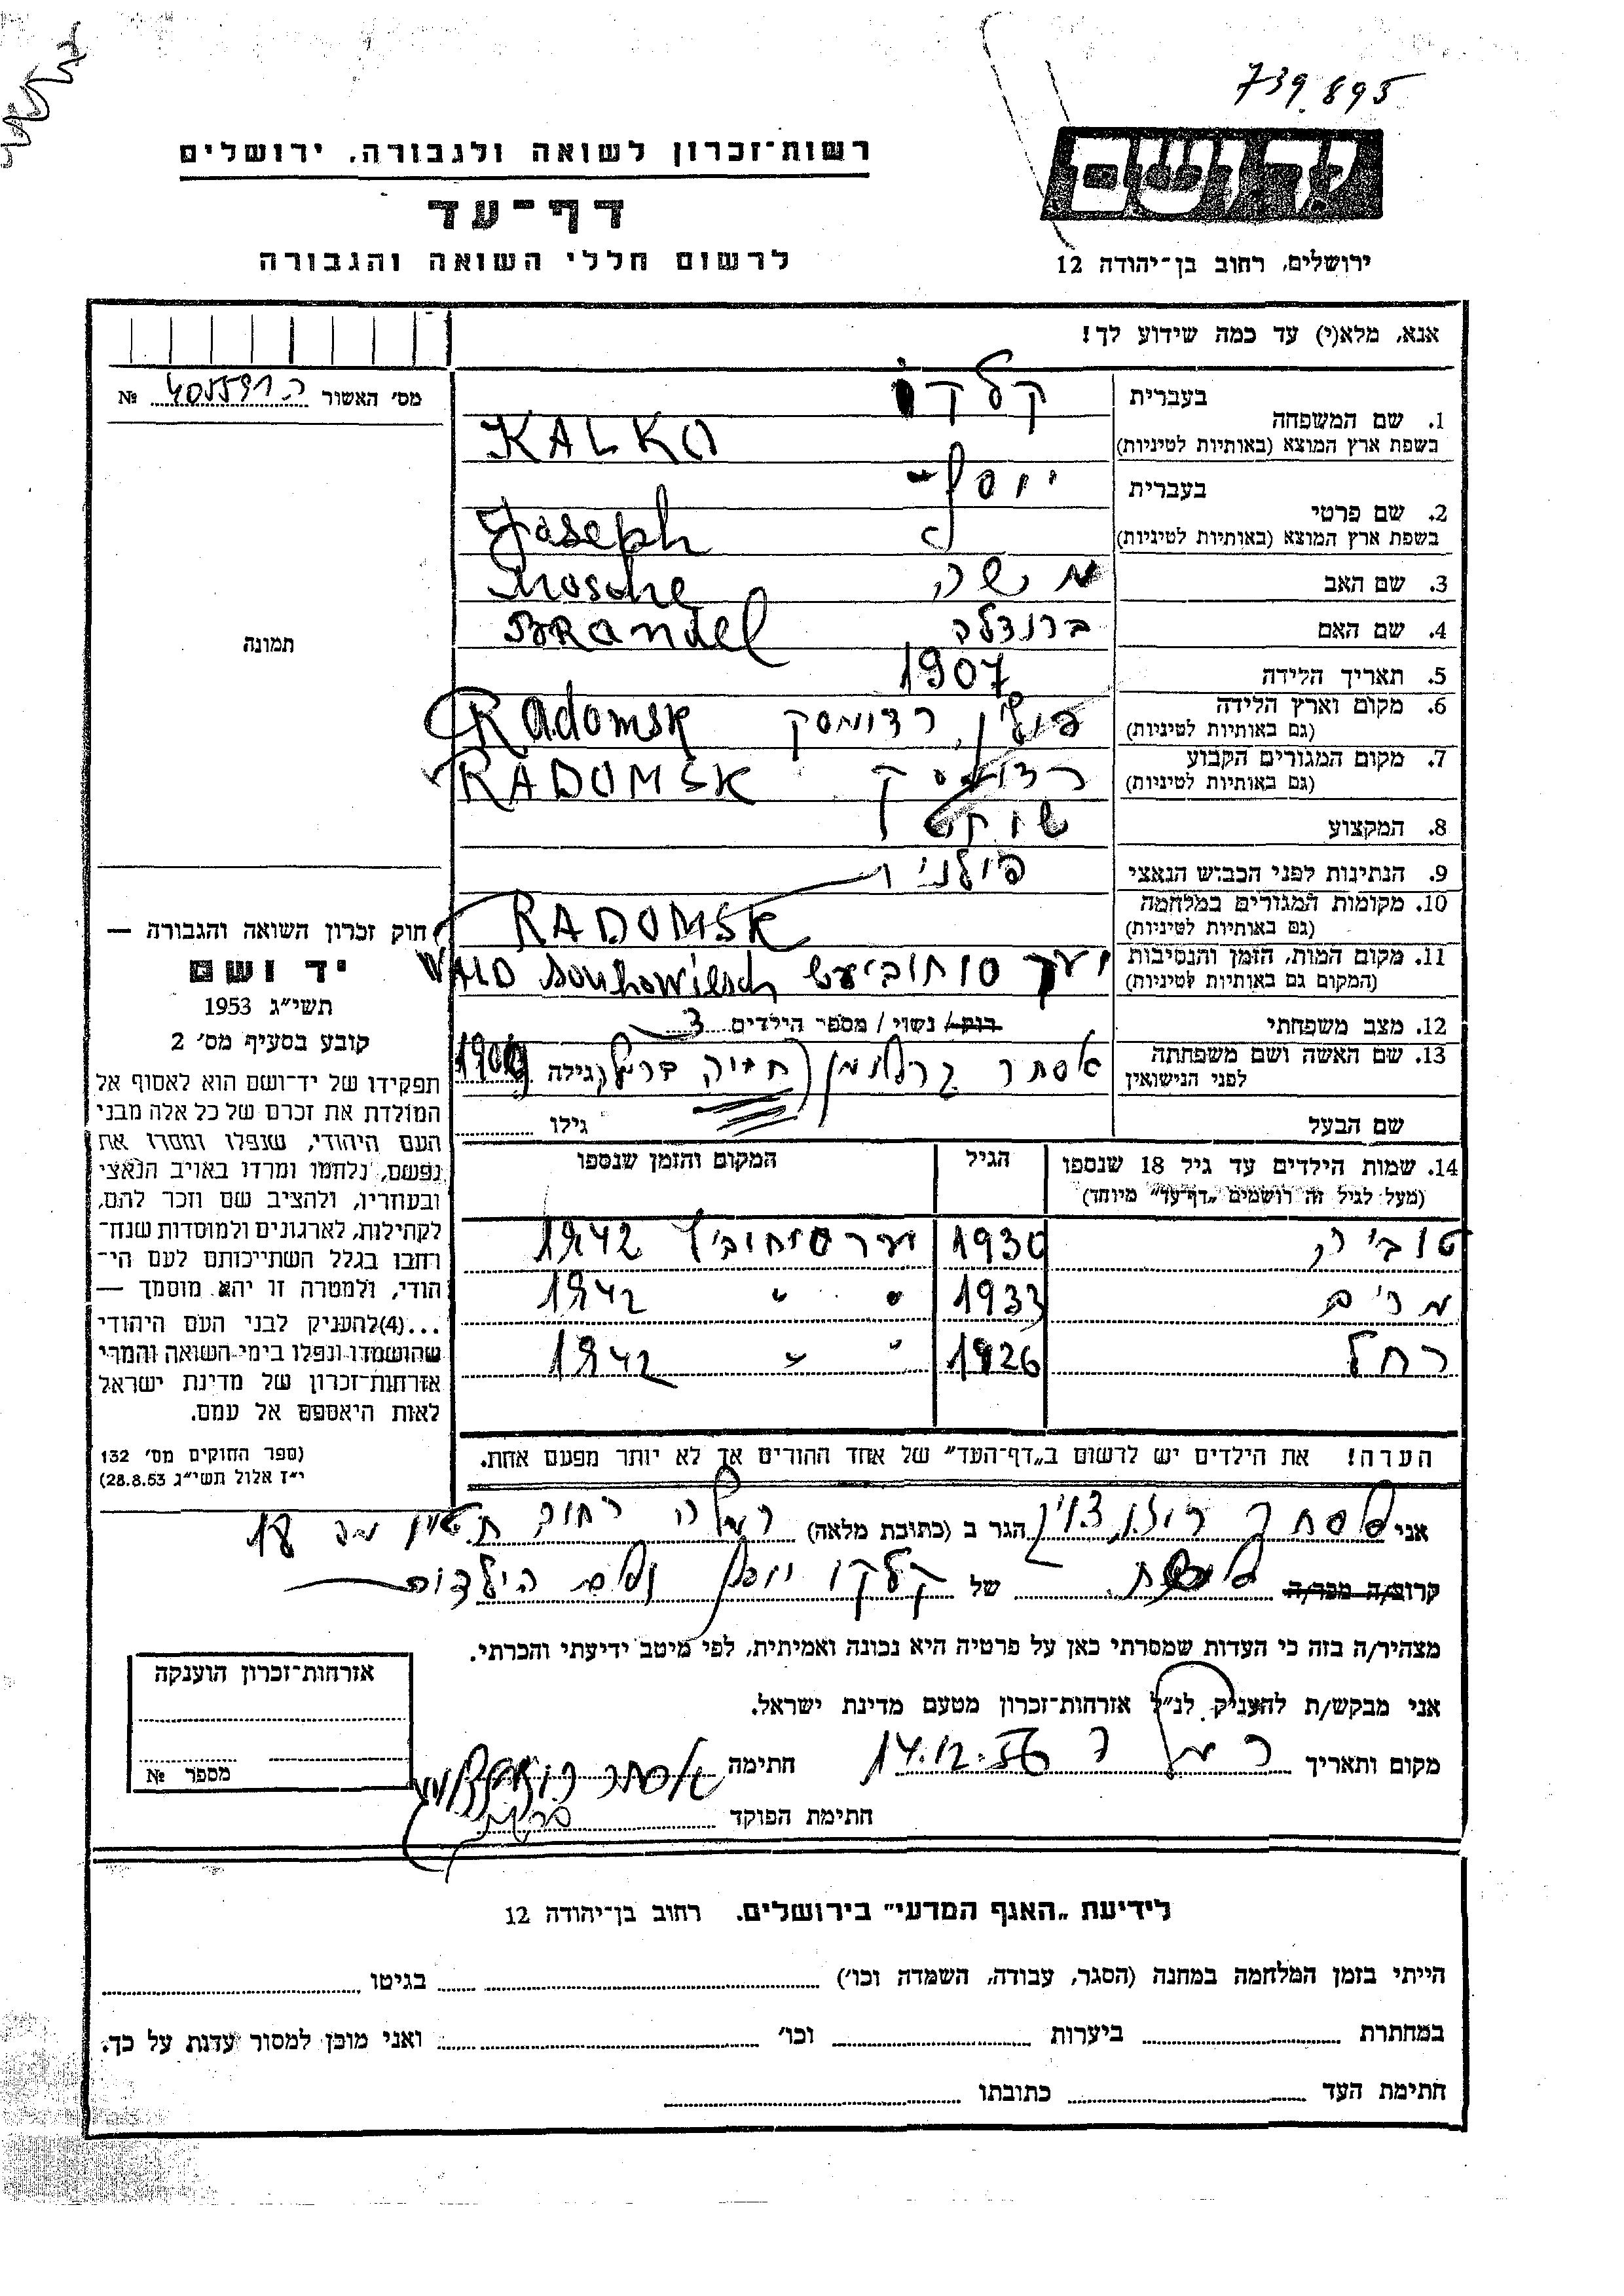 739.895
רשות־זכרון לשואה ולגבורה, ירושלים
יד ושם
דף־עד
לרשום חללי השואה והגבורה
ירושלים, רחוב בן־יהודה 12
אנא, מלא(י) עד כמה שידוע לך!
מס׳ האשור №
1. שם המשפחה
בעברית קלקו
בשפת ארץ המוצא (באותיות לטיניות) KALKO
2. שם פרטי
בעברית יוסף
בשפת ארץ המוצא (באותיות לטיניות) Joseph
3. שם האב משה Mosche
4. שם האם ברנדלה Brandel
5. תאריך הלידה 1907
6. מקום וארץ הלידה
(גם באותיות לטיניות) פולין, רדומסק Radomsk
7. מקום המגורים הקבוע
(גם באותיות לטיניות) רדומסק RADOMSK
8. המקצוע
9. הנתינות לפני הכבוש הנאצי פולני
10. מקומות המגורים במלחמה
(גם באותיות לטיניות) RADOMSK
11. מקום המות, הזמן והנסיבות
(המקום גם באותיות לטיניות) יער סוחוביץ WALD
12. מצב משפחתי רווק / נשוי / מספר הילדים 3
13. שם האשה ושם משפחתה
לפני הנישואין אסתר גילה
שם הבעל גילו
14. שמות הילדים עד גיל 18 שנספו
(מעל לגיל זה רושמים „דף־עד״ מיוחד)
הגיל
המקום והזמן שנספו
טוביה 1930 יער סוחוביץ 1942
מרים 1933 " " 1942
רחל 1926 " " 1942
הערה! את הילדים יש לרשום ב„דף־העד״ של אחד ההורים אך לא יותר מפעם אחת.
תמונה
חוק זכרון השואה והגבורה —
יד ושם
תשי״ג 1953
קובע בסעיף מס׳ 2
תפקידו של יד־ושם הוא לאסוף אל
המולדת את זכרם של כל אלה מבני
העם היהודי, שנפלו ומסרו את
נפשם, נלחמו ומרדו באויב הנאצי
ובעוזריו, ולהציב שם וזכר להם,
לקהילות, לארגונים ולמוסדות שנח־
רבו בגלל השתייכותם לעם הי־
הודי, ולמטרה זו יהא מוסמך —
...(4)להעניק לבני העם היהודי
שהושמדו ונפלו בימי השואה והמרי
אזרחות־זכרון של מדינת ישראל
לאות היאספם אל עמם.
(ספר החוקים מס׳ 132
י״ז אלול תשי״ג 28.8.53)
אני אסתר הגר ב (כתובת מלאה) רמלה רחוב 18
קרוב/ה מכר/ה של קלקו יוסף הילדים
מצהיר/ה בזה כי העדות שמסרתי כאן על פרטיה היא נכונה ואמיתית, לפי מיטב ידיעתי והכרתי.
אני מבקש/ת להעניק לנ״ל אזרחות־זכרון מטעם מדינת ישראל.
מקום ותאריך רמלה 14.12.56 חתימה אסתר
חתימת הפוקד
אזרחות־זכרון הוענקה
מספר №
לידיעת „האגף המדעי״ בירושלים. רחוב בן־יהודה 12
הייתי בזמן המלחמה במחנה (הסגר, עבודה, השמדה וכו׳) בגיטו
במחתרת ביערות וכו׳ ואני מוכן למסור עדות על כך.
חתימת העד כתובתו